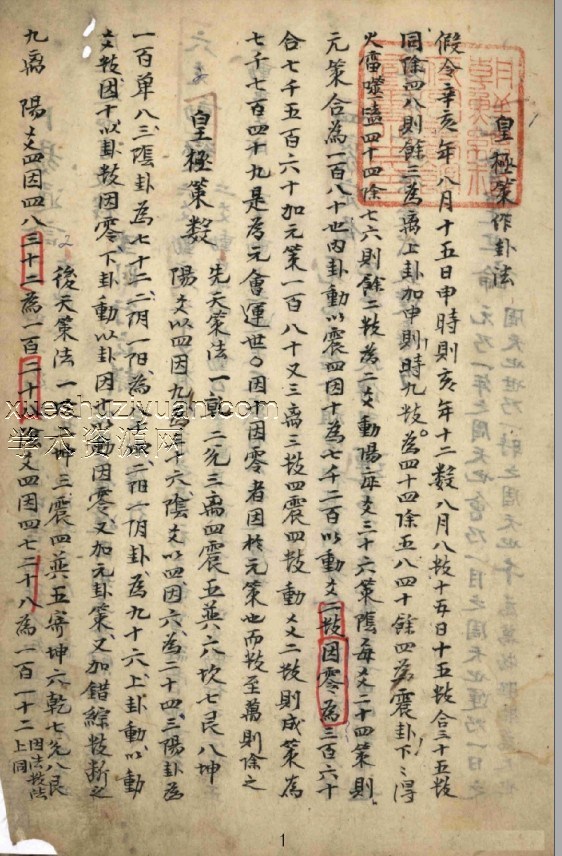 皇極策作卦法
假令辛亥年八月十五日申時則亥年十二數八月八數十五日十五數合三十五數
同除四八則餘三為离上卦加申則時九數。為四十四除五八四十餘四為震卦下〻得
火雷噬嗑四十四除七六則餘二數為二爻動陽每爻三十六策陰每爻二十四策則
元策合為一百八十也內卦動以震四因十為七千二百以動爻二數因零為三百六十
合七千五百六十加元策一百八十又三离三數四震四數動爻二數則成策為
七千七百四十九是為元會運世。因十因零者因於元策也而數至萬則除之
皇極策數
先天策法一乾二兌三离四震五巽六坎七艮八坤
陽爻以四因九為三十六陰爻以四因六為二十四三陽卦為
一百單八三陰卦為七十二二陰一陽為八十四二陽一陰卦為九十六上卦動以動
爻數因十以卦數因零下卦動以卦因十以動因零又加元卦策又加錯綜數斷之
後天策法一坎二坤三震四巽五寄坤六乾七兌八艮
九离 陽爻四因四八三十二為一百二十八陰爻四因四七二十八為一百一十二因法數法上同
xueshuziyuan.com
学术资源网
1